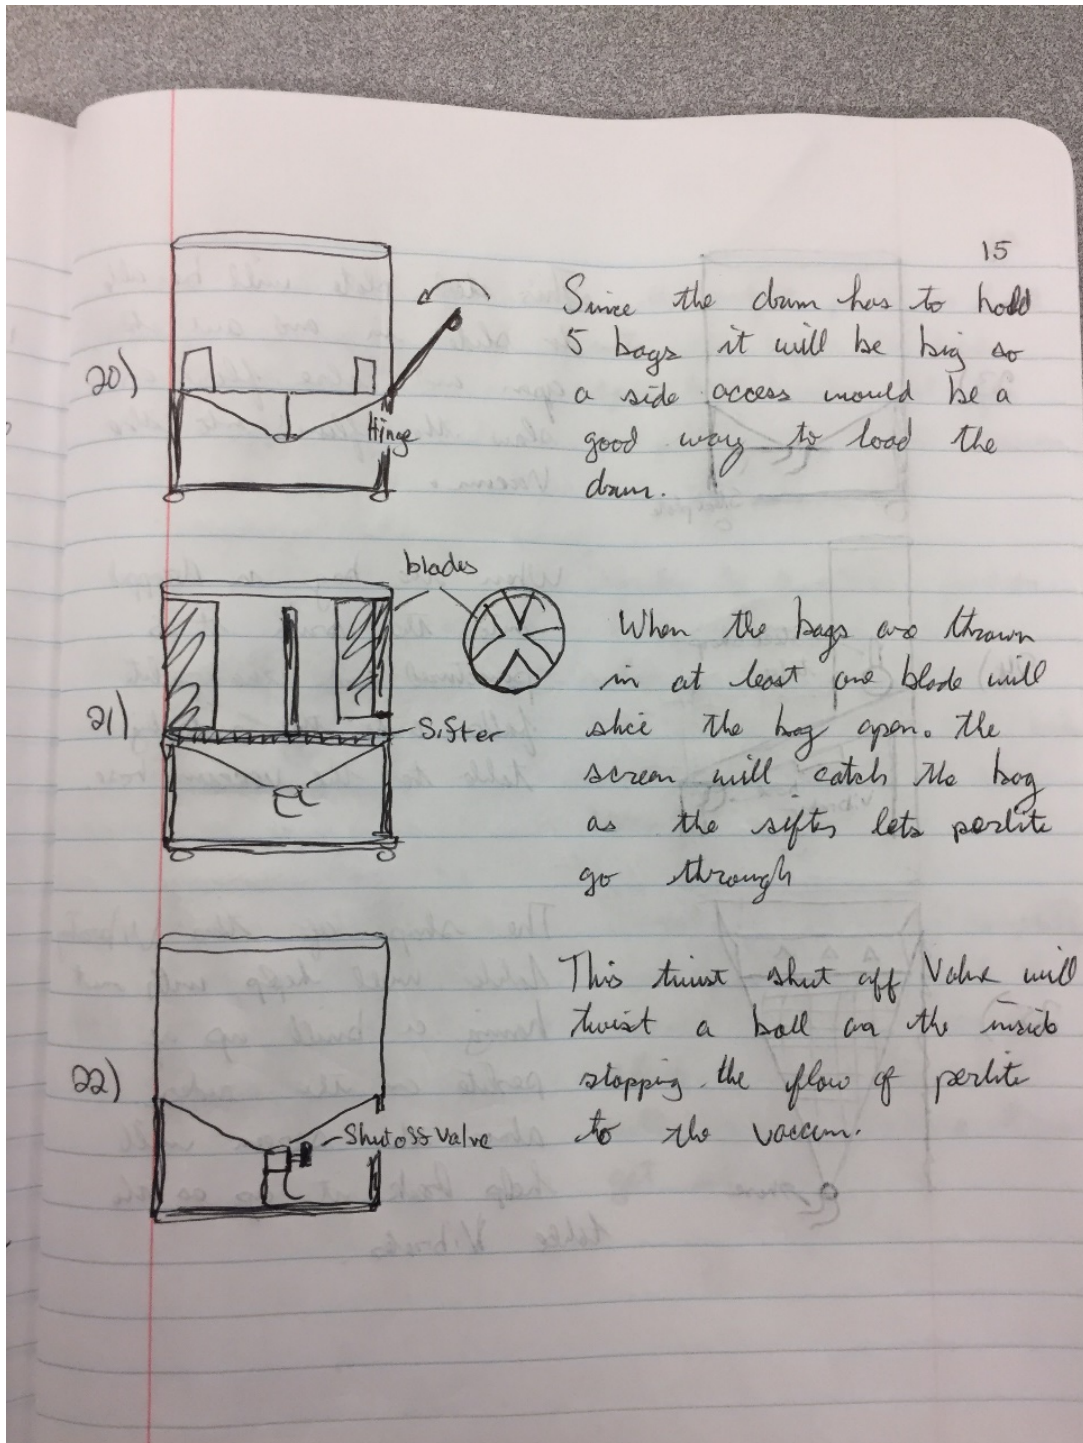 15
20)
Hinge
Since the drum has to hold
5 bags it will be big so
a side access would be a
good way to load the
drum.
21)
blades
Sifter
When the bags are thrown
in at least one blade will
slice the bag open. the
screen will catch the bag
as the sifter lets perlite
go through
22)
Shutoff Valve
This twist shut off Valve will
twist a ball on the inside
stopping the flow of perlite
to the vaccum.